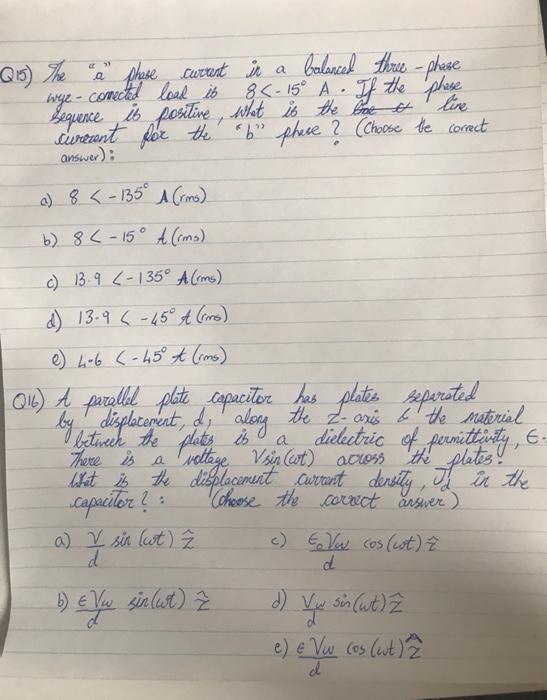 Q15) The "a" phase current in a balanced three-phase
wye-connected load is 8<-15° A. If the phase
sequence is positive, what is the line
current for the "b" phase? (Choose the correct
answer):
a) 8 < -135° A (rms)
b) 8 < -15° A (rms)
c) 13.9 < -135° A (rms)
d) 13.9 < -45° A (rms)
e) 4.6 < -45° A (rms)
Q16) A parallel plate capacitor has plates separated
by displacement, d, along the z-axis & the material
between the plates is a dielectric of permittivity, ϵ.
There is a voltage Vsin(ωt) across the plates.
What is the displacement current density, Jd in the
capacitor? : (Choose the correct answer)
a) V/d sin(ωt) ẑ
c) ϵ₀Vω/d cos(ωt) ẑ
b) ϵVω/d sin(ωt) ẑ
d) Vω/d sin(ωt) ẑ
e) ϵVω/d cos(ωt) ẑ